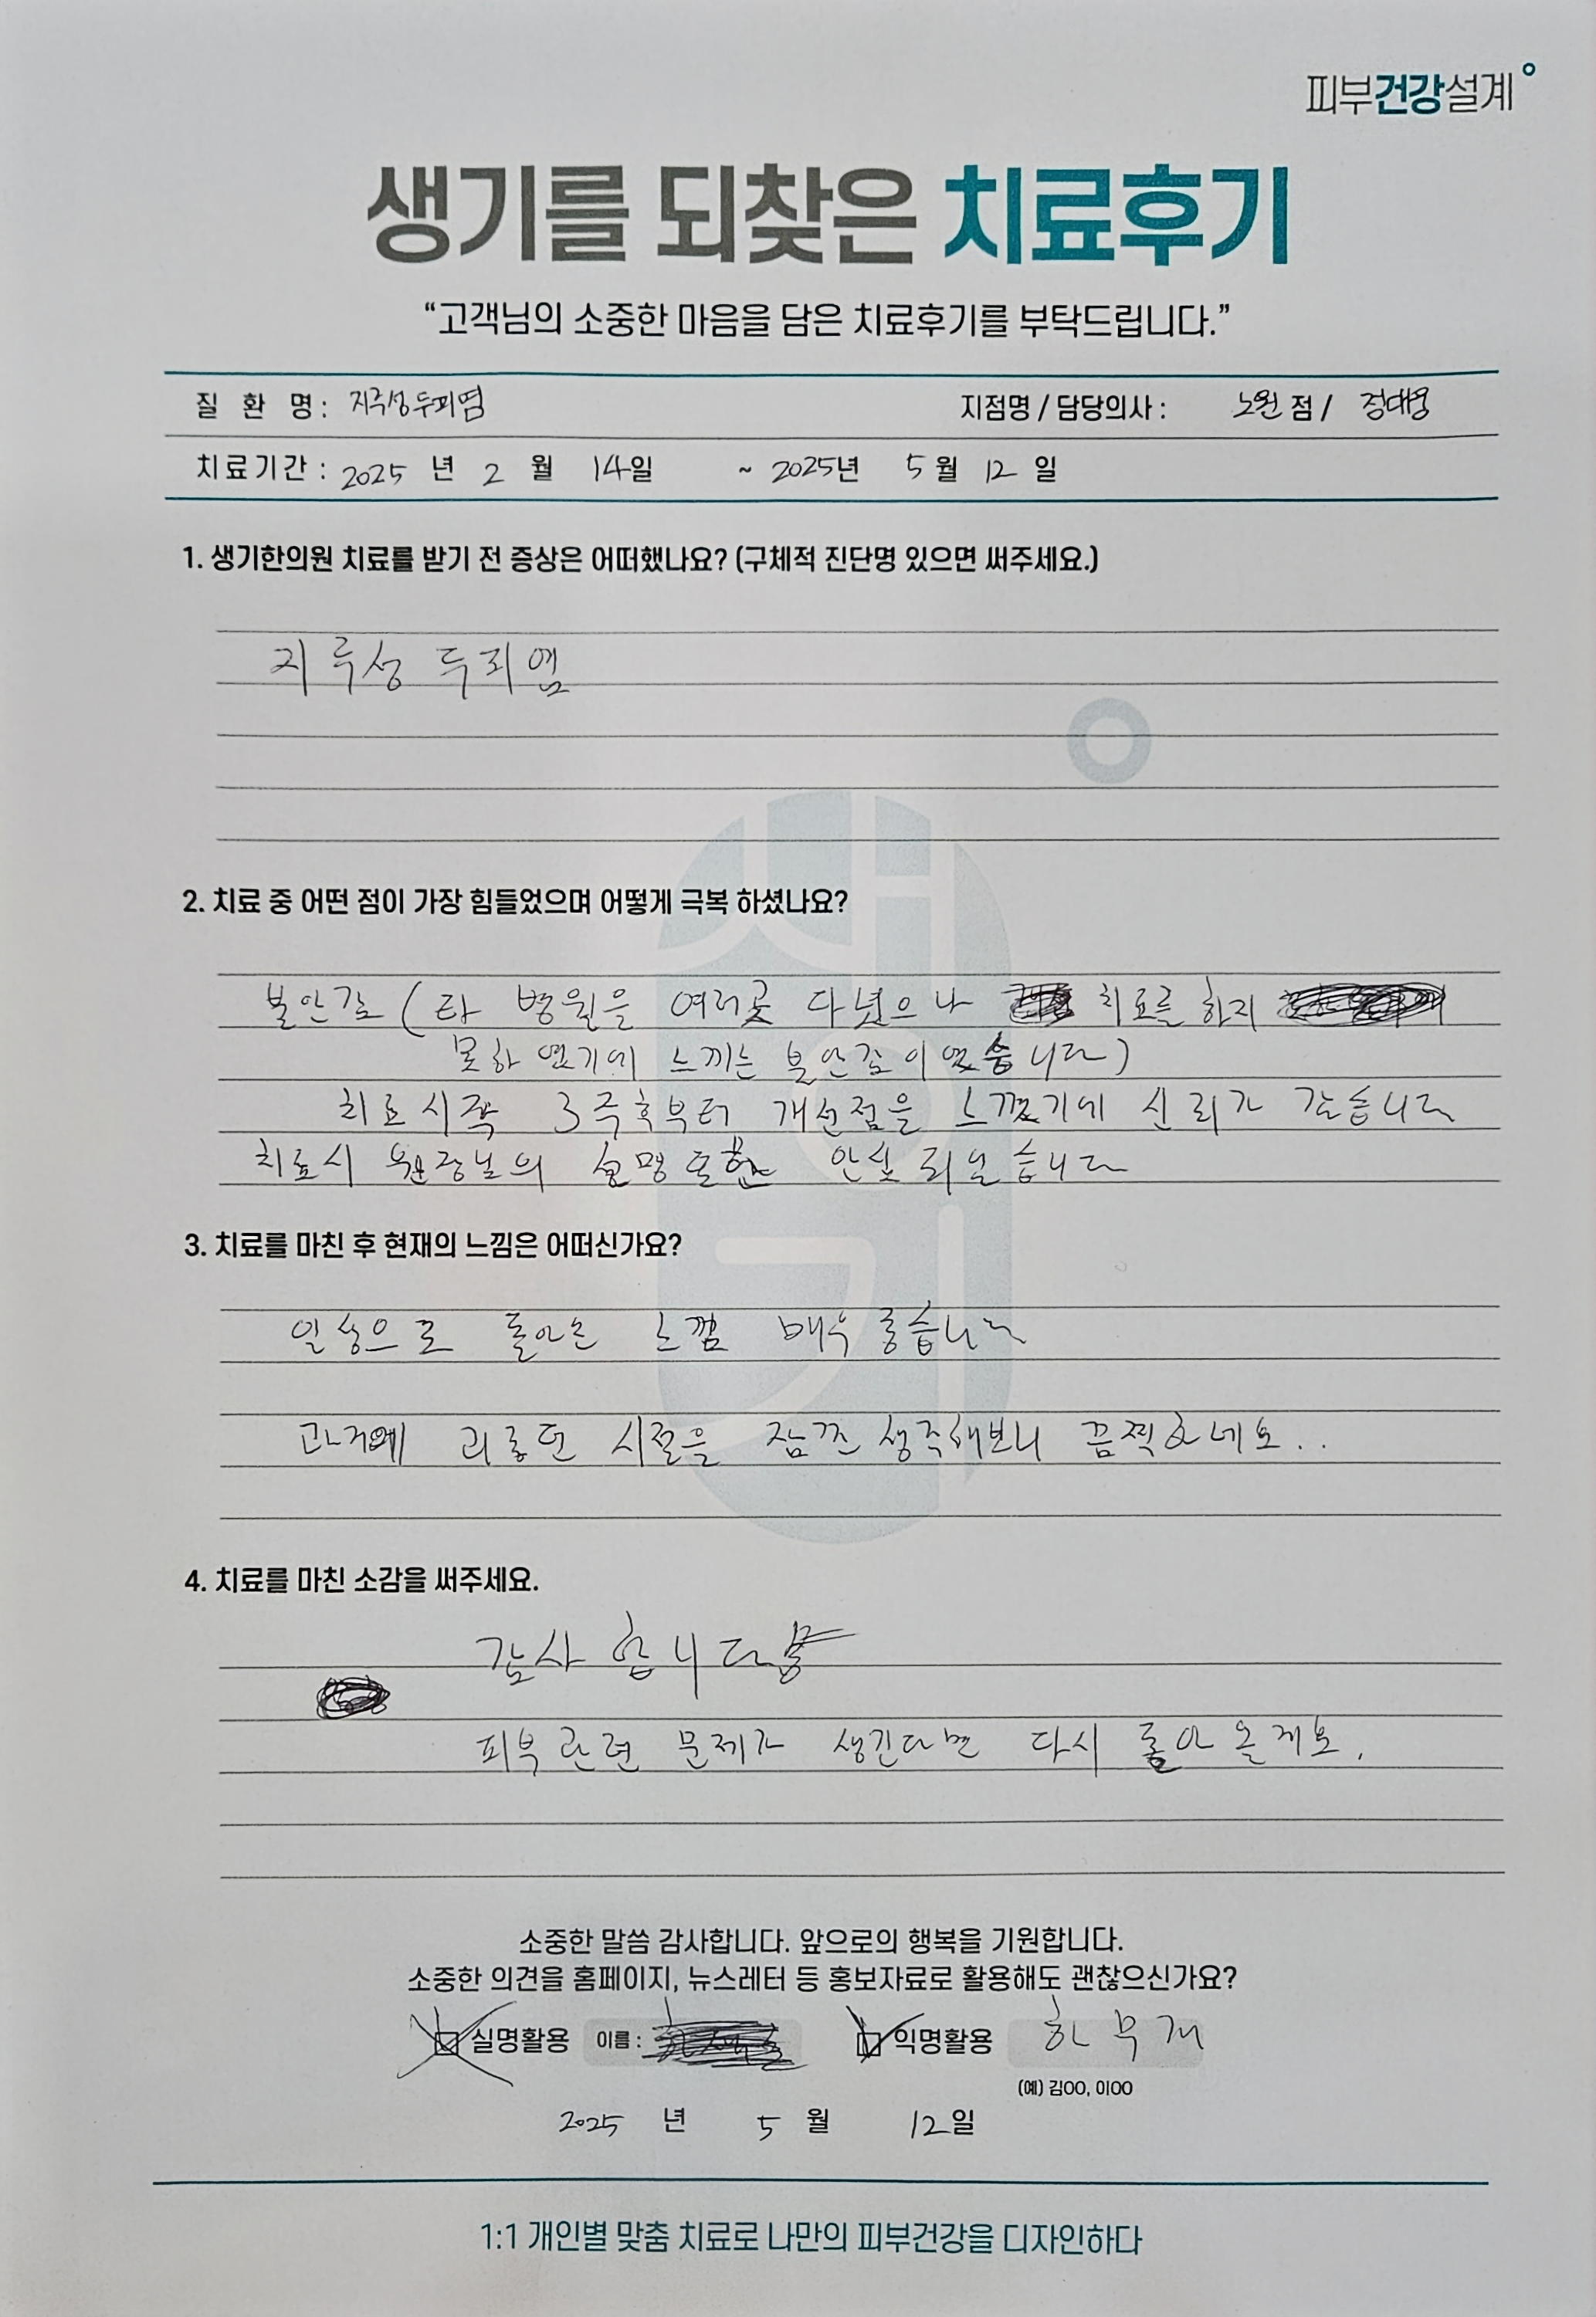 피부건강설계
생기를 되찾은 치료후기
“고객님의 소중한 마음을 담은 치료후기를 부탁드립니다.”
질 환 명 : 지루성 두피염 지점명 / 담당의사 : 노원 점 / 정대웅
치료기간 : 2025 년 2 월 14일 ~ 2025년 5 월 12 일
1. 생기한의원 치료를 받기 전 증상은 어떠했나요? (구체적 진단명 있으면 써주세요.)
지루성 두피염
2. 치료 중 어떤 점이 가장 힘들었으며 어떻게 극복 하셨나요?
불안감 (타 병원을 여러곳 다녔으나 치료를 하지
못하였기에 느끼는 불안감이였습니다)
치료시작 3주후부터 개선점을 느꼈기에 신뢰가 갔습니다
치료시 원장님의 설명 또한 안심 되었습니다
3. 치료를 마친 후 현재의 느낌은 어떠신가요?
일상으로 돌아온 느낌 매우 좋습니다
과거에 괴롭던 시절을 잠깐 생각해보니 끔찍하네요..
4. 치료를 마친 소감을 써주세요.
감사합니다
피부관련 문제가 생긴다면 다시 돌아올게요.
소중한 말씀 감사합니다. 앞으로의 행복을 기원합니다.
소중한 의견을 홈페이지, 뉴스레터 등 홍보자료로 활용해도 괜찮으신가요?
실명활용 이름 : 익명활용 한무개
(예) 김OO, 이OO
2025 년 5 월 12일
1:1 개인별 맞춤 치료로 나만의 피부건강을 디자인하다
생기